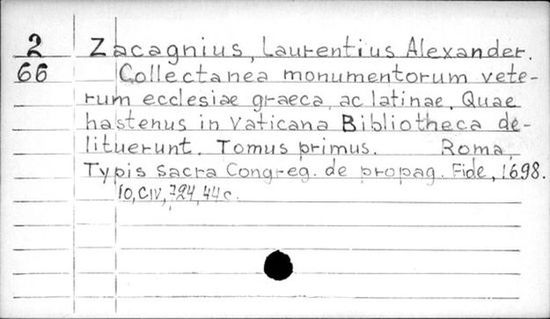 2 Zacagnius, Laurentius Alexander.
66 Collectanea monumentorum vete-
rum ecclesiae graeca, ac latinae. Quae
hastenus in Vaticana Bibliotheca de-
lituerunt. Tomus primus. Roma,
Typis Sacra Congreg. de propag. Fide, 1698.
10, CIV, 724, 44 c.